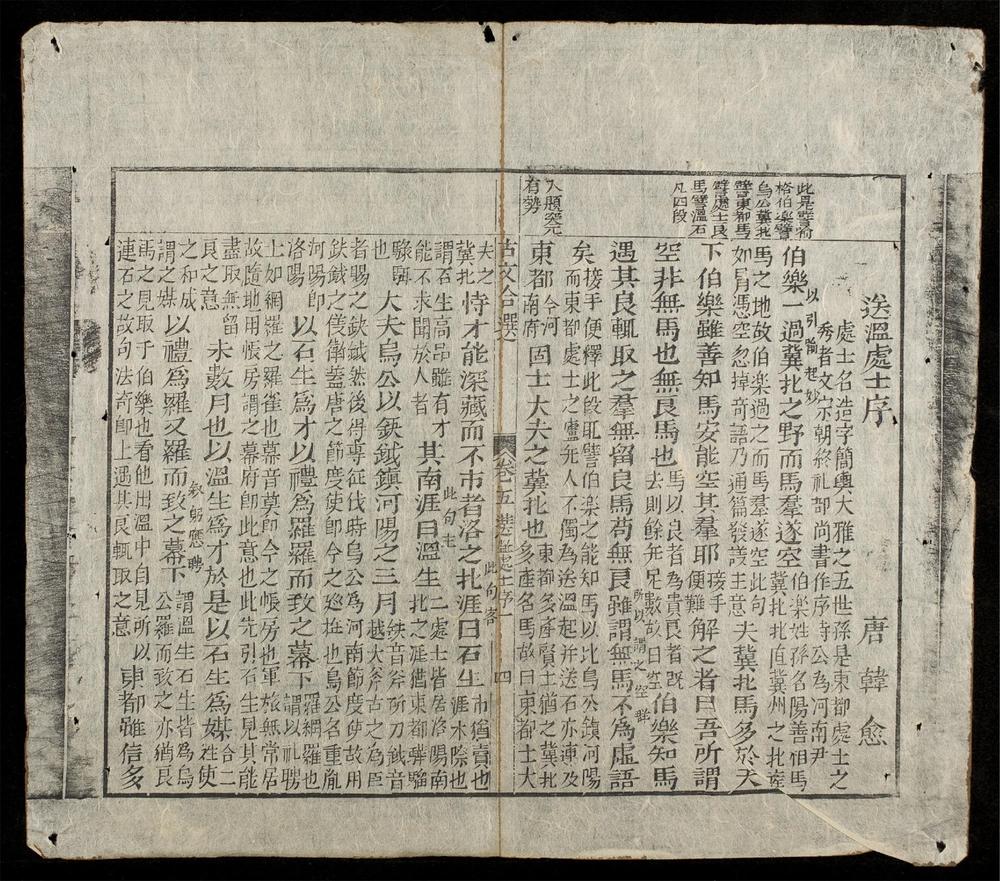 送溫處士序
唐 韓 愈
處士名造字簡輿大雅之五世孫是東都處士之
秀者文宗朝終祀部尚書作序時公為河南尹
以引喻起妙
伯樂一過冀北之野而馬羣遂空
伯楽姓孫名陽善相馬
冀北北直冀州之北産
馬之地故伯楽過之而馬羣遂空此句
如冐憑空忽掉奇語乃通篇發議主意
夫冀北馬多於天
下伯樂雖善知馬安能空其羣耶
接手
便難
解之者曰吾所謂
空非無馬也無良馬也
馬以良者為貴良者既
去則餘無足數故曰空
所以謂之空群
伯樂知馬
遇其良輒取之羣無留良馬苟無良雖謂無馬不為虛語
矣
接手便釋此段既譬伯楽之能知馬以比烏公鎮河陽
而東都處士之廬无人不獨為送溫起并送石亦連及
東都
今河
南府
固士大夫之冀北也
東都多產賢士猶之冀北
多產名馬故曰東都士大
此是譬喻
格伯樂譬
烏公冀北
譬東都馬
譬處士良
馬譬溫石
凡四段
入題突兀
有勢
古文合選
卷五 送溫處士序一
四
夫之
冀北
恃才能深藏而不市者洛之北涯曰石生
此句客
市猶賣也
涯水際也
謂石生高品雖有才
能不求聞於人者
其南涯曰溫生
此句主
二處士皆居洛陽南
北之涯猶東都騨騮
騄駬
也
大夫烏公以鈇鉞鎮河陽之三月
鈇音斧所刀鉞音
越大斧古之為臣
者賜之鈇鉞然後得專征伐時烏公為河南節度使故用
鈇鉞之儀衞蓋唐之節度使即今之廵撫也烏公名重胤
河陽即
洛陽
以石生為才以禮為羅羅而致之幕下
羅網羅也
謂以礼聘
士如網羅之羅雀也幕音莫即今之帳房也軍旅無常居
故隨地用帳房謂之幕府即此意也此先引石生見其能
盡取無留
良之意
未數月也以溫生為才於是以石生為媒
合二
姓使
之和成
謂之媒
以禮為羅又羅而致之幕下
叙躬應聘
謂溫生石生皆為烏
公羅而致之亦猶良
馬之見取于伯樂也看他出溫中自見所以
連石之故句法奇卽上遇其良輒取之意
東都雖信多